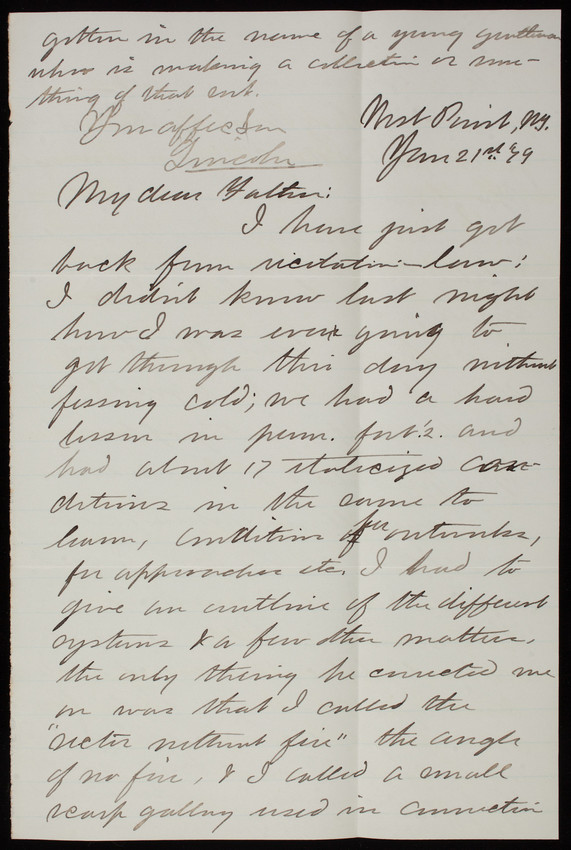 gotten in the name of a young gentleman
who is making a collection or some-
thing of that sort.
Your affec. Son
Lincoln
West Point, N.Y.
Jan 21st '79
My dear Father:
I have just got
back from recitation–law;
I didn't know last night
how I was ever going to
get through this day without
fessing cold; we had a hard
lesson in perm. fort.'s. and
had about 17 italicized con-
ditions in the same to
learn, conditions for outworks,
for approaches etc. I had to
give an outline of the different
systems & a few other matters.
the only thing he corrected me
on was that I called the
"sector without fire" the angle
of no fire, & I called a small
scarp gallery used in connection